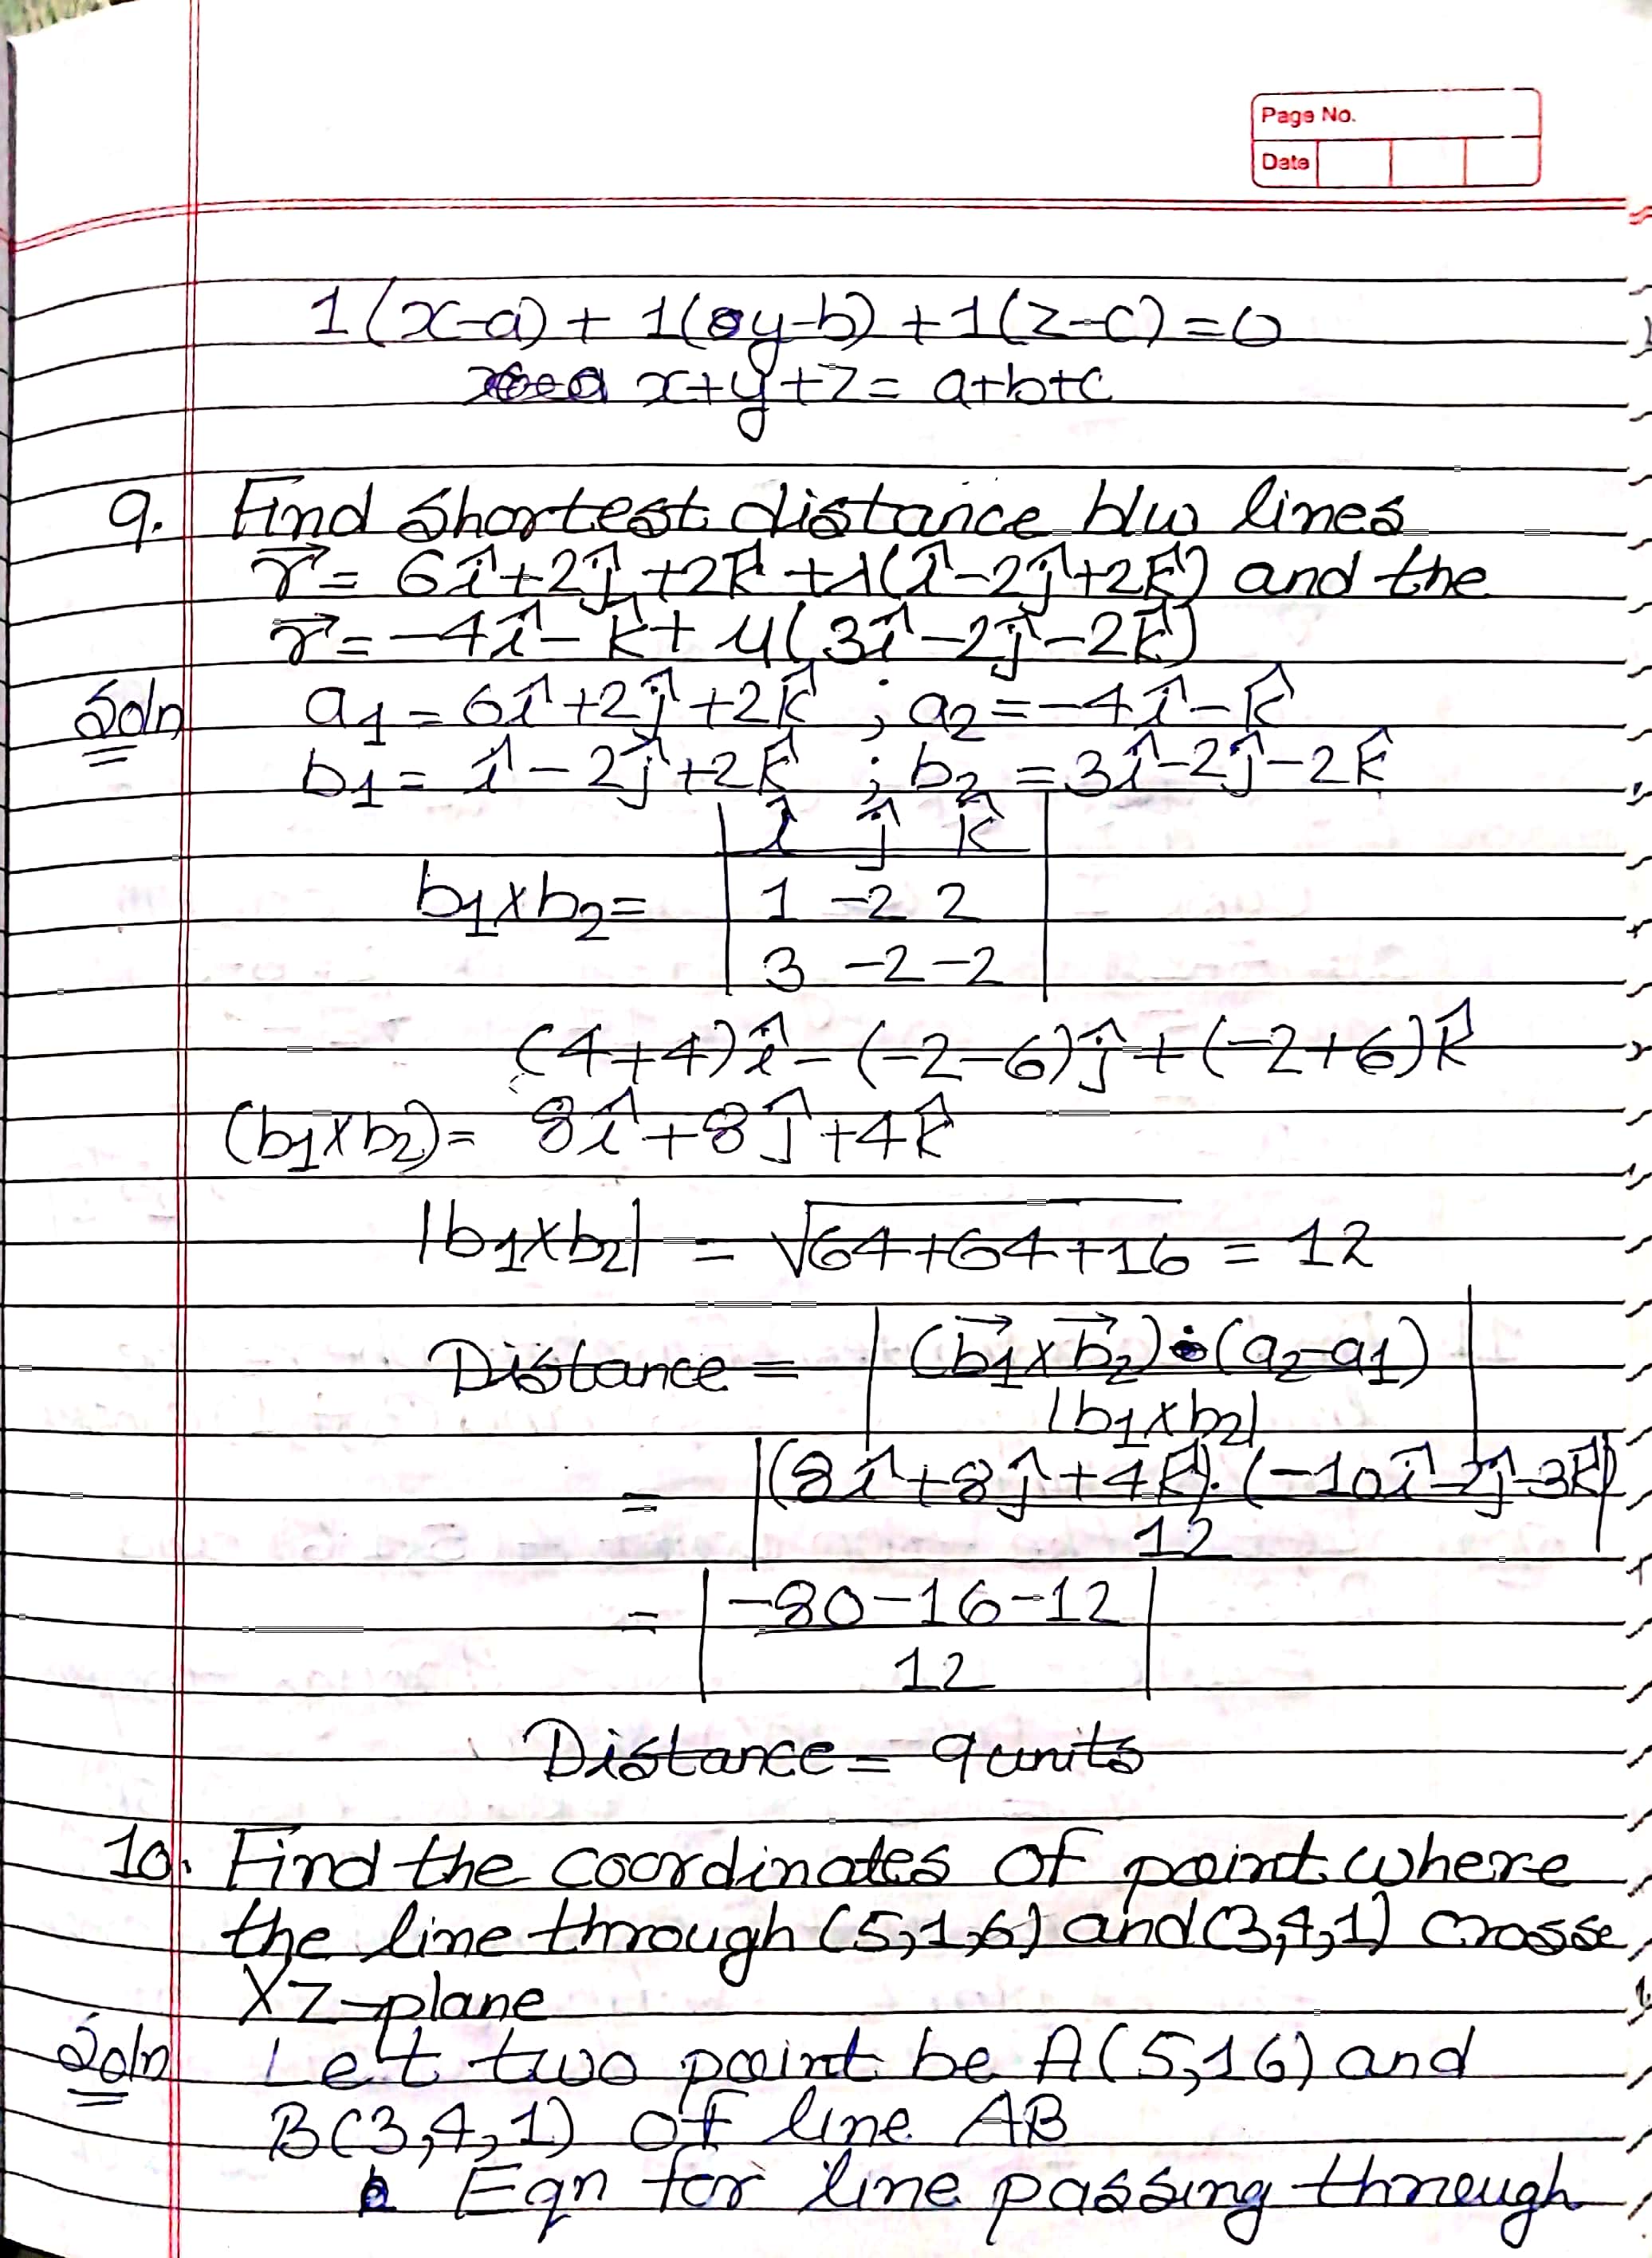 Page No.
Date
1(x-a) + 1(y-b) + 1(z-c) = 0
x+y+z = a+b+c
9. Find shortest distance b/w lines
r⃗ = 6î+2ĵ+2k̂ + λ(î-2ĵ+2k̂) and the
r⃗ = -4î - k̂ + μ(3î-2ĵ-2k̂)
Soln a1 = 6î+2ĵ+2k̂ ; a2 = -4î - k̂
b1 = î - 2ĵ + 2k̂ ; b2 = 3î-2ĵ-2k̂
î ĵ k̂
b1xb2 = | 1 -2 2 |
3 -2 -2
(4+4)î - (-2-6)ĵ + (-2+6)k̂
(b1xb2) = 8î+8ĵ+4k̂
|b1xb2| = √64+64+16 = 12
Distance = | (b⃗1xb⃗2)•(a2-a1) |
|b1xb2|
= |(8î+8ĵ+4k̂).(-10î-2ĵ-3k̂)|
12
= | -80-16-12 |
12
Distance = 9units
10. Find the coordinates of point where
the line through (5,1,6) and (3,4,1) crosse
XZ-plane
Soln Let two point be A(5,16) and
B(3,4,1) of line AB
Eqn for line passing through